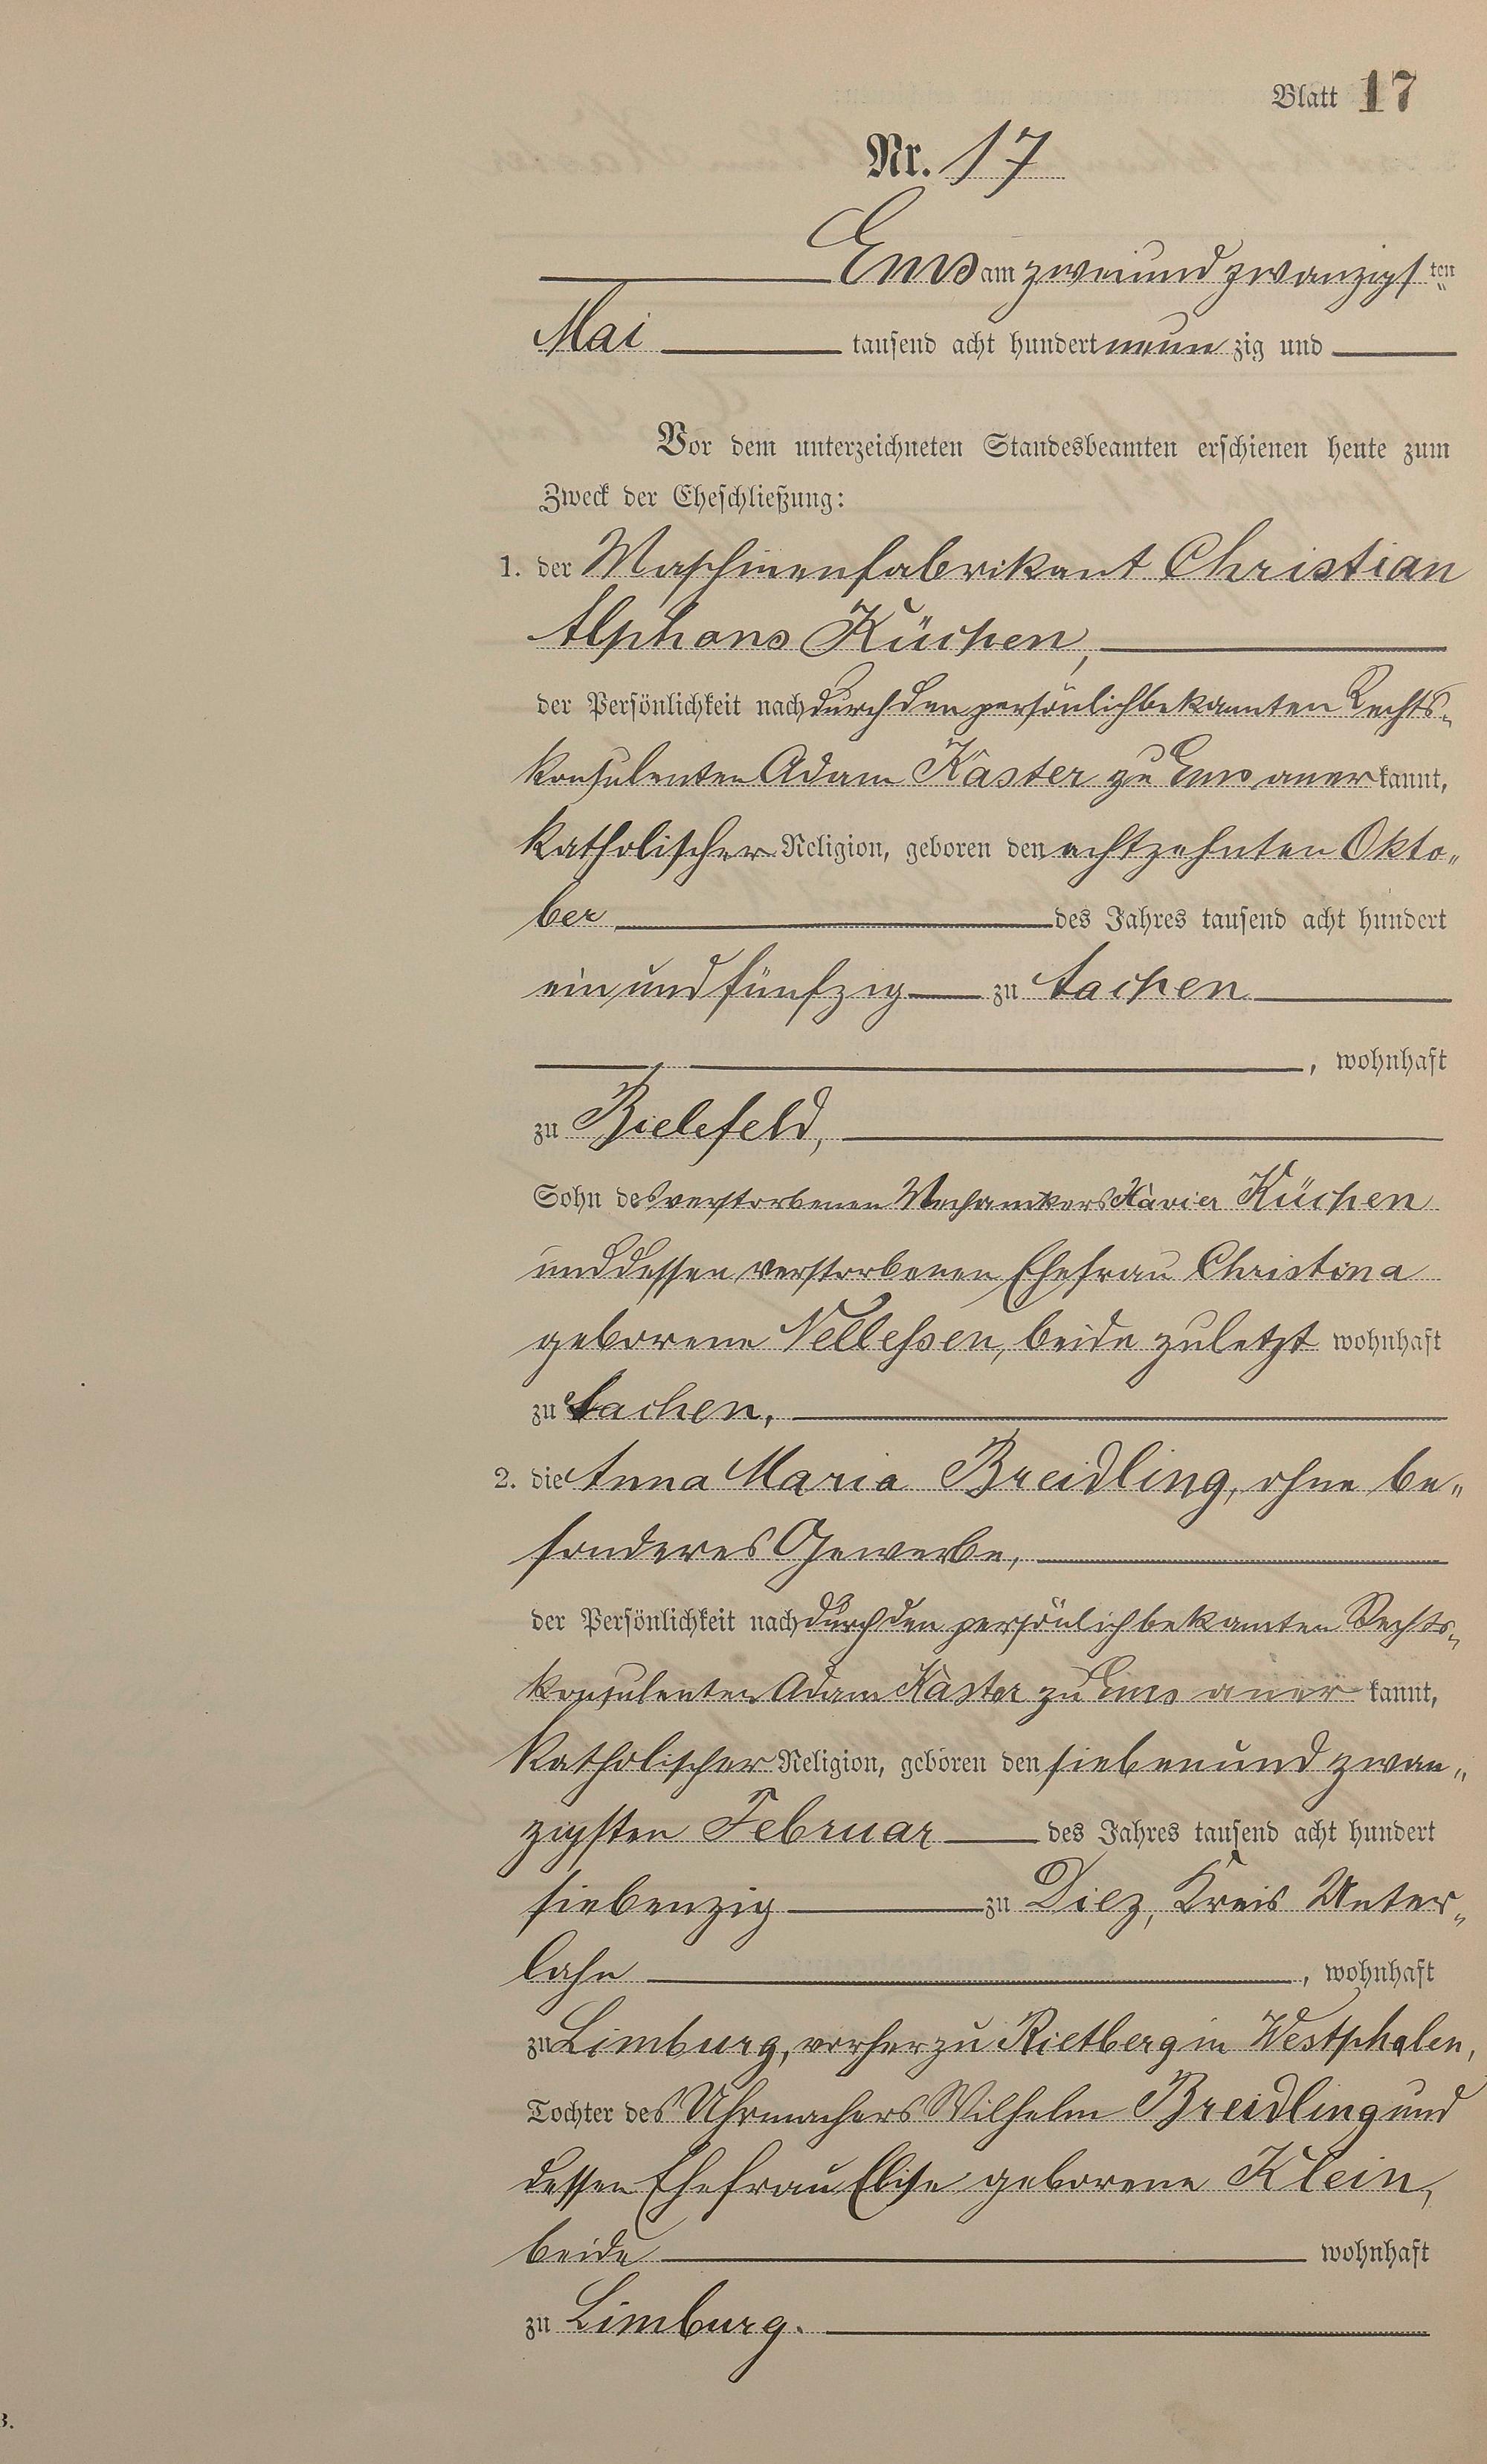 Blatt 17
Nr. 17
Ems am zweiundzwanzigsten
Mai tausend acht hundert neunzig und
Vor dem unterzeichneten Standesbeamten erschienen heute zum
Zweck der Eheschließung:
1. der Maschinenfabrikant Christian
Alphons Küchen,
der Persönlichkeit nach durch den persönlich bekannten Rechts-
konsulenten Adam Kaster zu Ems anerkannt,
katholischer Religion, geboren den achtzehnten Okto-
ber des Jahres tausend acht hundert
ein und fünfzig zu Aachen
, wohnhaft
zu Bielefeld,
Sohn des verstorbenen Mechanikers Xavier Küchen
und dessen verstorbenen Ehefrau Christina
geborene Nellessen, beide zuletzt wohnhaft
zu Aachen,
2. die Anna Maria Breidling, ohne be-
sonderes Gewerbe,
der Persönlichkeit nach durch den persönlich bekannten Rechts-
konsulenten Adam Kaster zu Ems anerkannt,
katholischer Religion, geboren den siebenundzwan-
zigsten Februar des Jahres tausend acht hundert
siebenzig zu Diez, Kreis Unter-
lahn , wohnhaft
zu Limburg, vorher zu Rietberg in Westphalen,
Tochter des Uhrmachers Wilhelm Breidling und
dessen Ehefrau Elise geborene Klein,
beide wohnhaft
zu Limburg.
B.